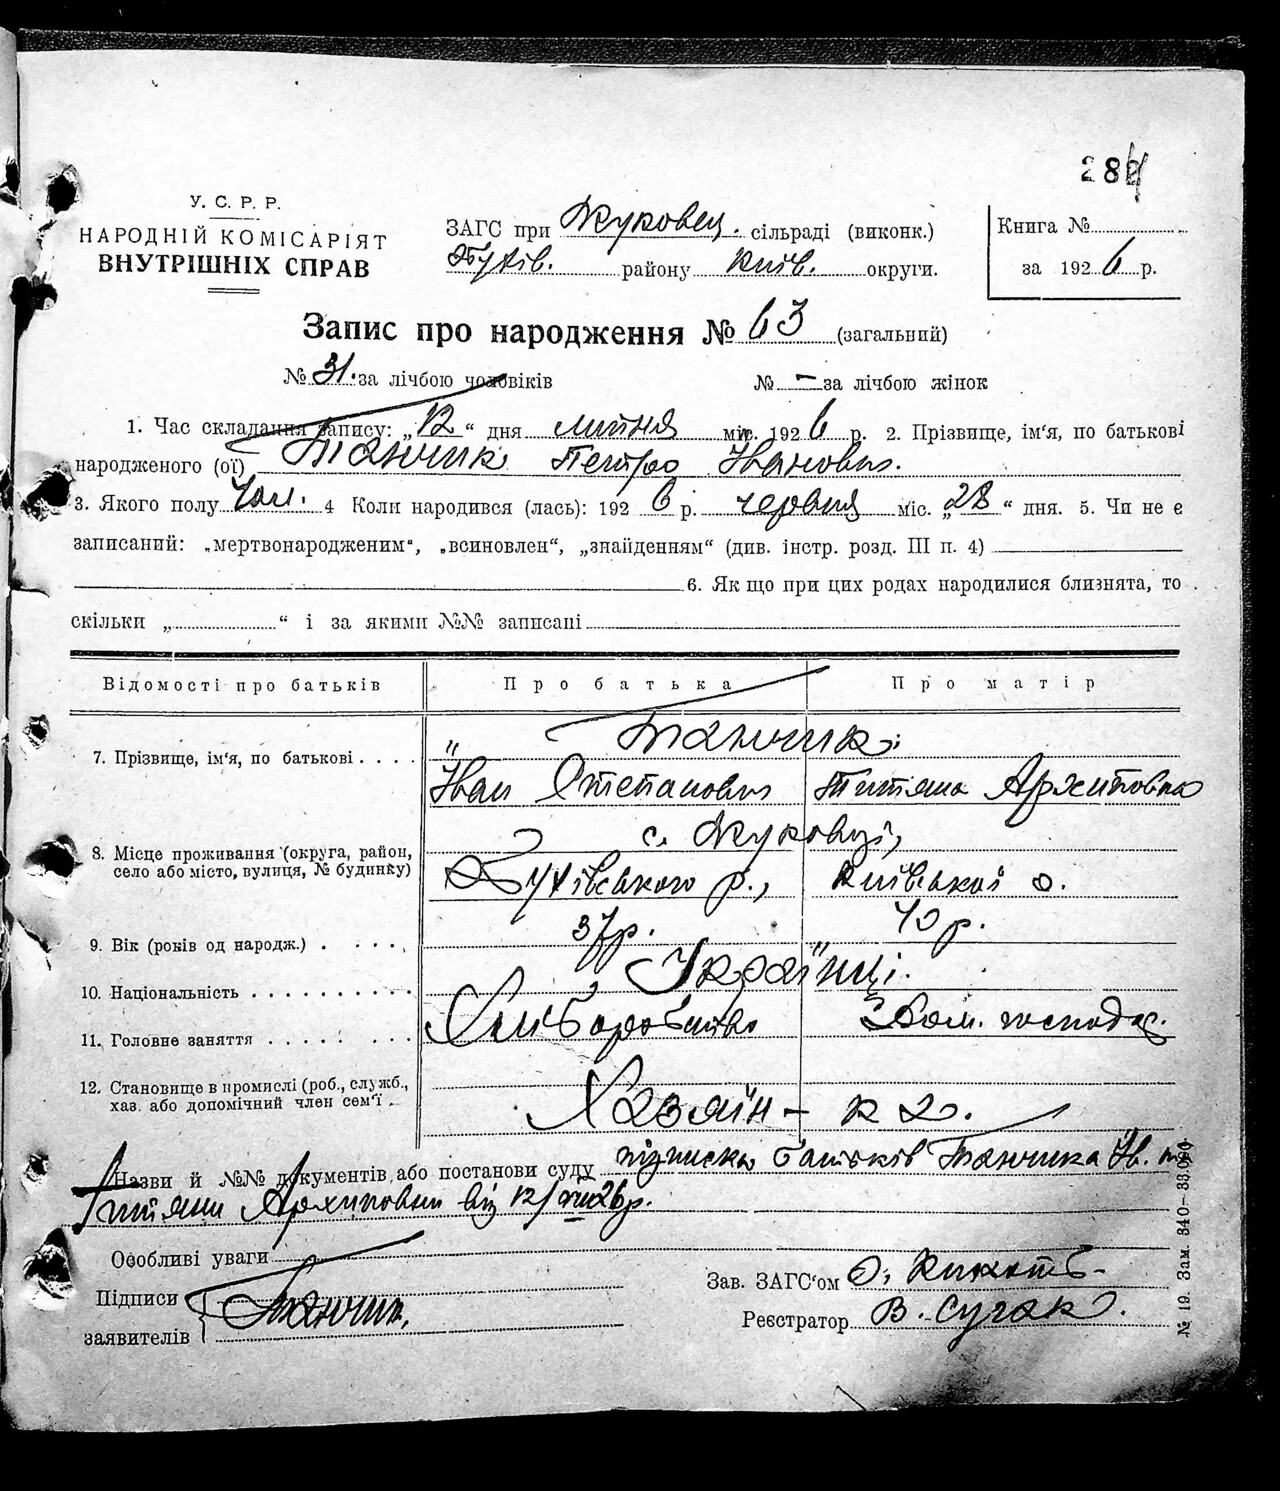 У. С. Р. Р.
НАРОДНІЙ КОМІСАРІЯТ
ВНУТРІШНІХ СПРАВ
ЗАГС при Жуковец. сільраді (виконк.)
Бухів. району Київ. округи.
Книга №
за 1926 р.
Запис про народження № 63 (загальний)
№ 31. за лічбою чоловіків № – за лічбою жінок
1. Час складання запису: „12“ дня липня міс. 1926 р. 2. Прізвище, ім'я, по батькові
народженого (ої) Танчик Петро Іванович.
3. Якого полу Чол. 4 Коли народився (лась): 1926 р. червня міс. „28“ дня. 5. Чи не є
записаний: „мертвонародженим“, „всиновлен“, „знайденням“ (див. інстр. розд. III п. 4)
6. Як що при цих родах народилися близнята, то
скільки „ “ і за якими №№ записані
Відомості про батьків Про батька Про матір
7. Прізвище, ім'я, по батькові . . . . Танчик.
Іван Степанович Титяна Архиповна
с. Жуковці,
8. Місце проживання (округа, район,
село або місто, вулиця, № будинку) Бухівського р., Київської о.
9. Вік (років од народж.) . . . . . 37р. 40 р.
10. Національність . . . . . . . . . . Українці.
11. Головне заняття . . . . . . . . . Хліборобство Дом. господар.
12. Становище в промислі (роб., служб.,
хаз. або допомічний член сем'ї . Хазяїн –
Назви й №№ документів або постанови суду підписка батьків Танчика Ів. т
Титяни Архиповни від 12/VII 26р.
Особливі уваги
Підписи
заявителів Танчик.
Зав. ЗАГС'ом О.
Реєстратор В. Сугак.
№ 19. Зам. 340–33.000